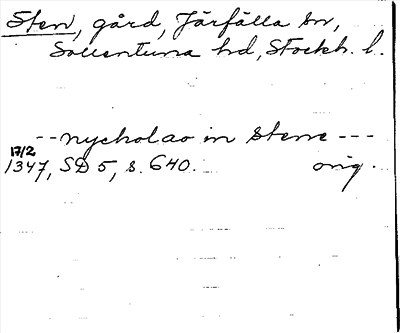 Sten, gård, Järfälla sn,
Sollentuna hd, Stockh. l.
-- nycholao in stene ---
17/2
1347, SD 5, s. 640. orig.